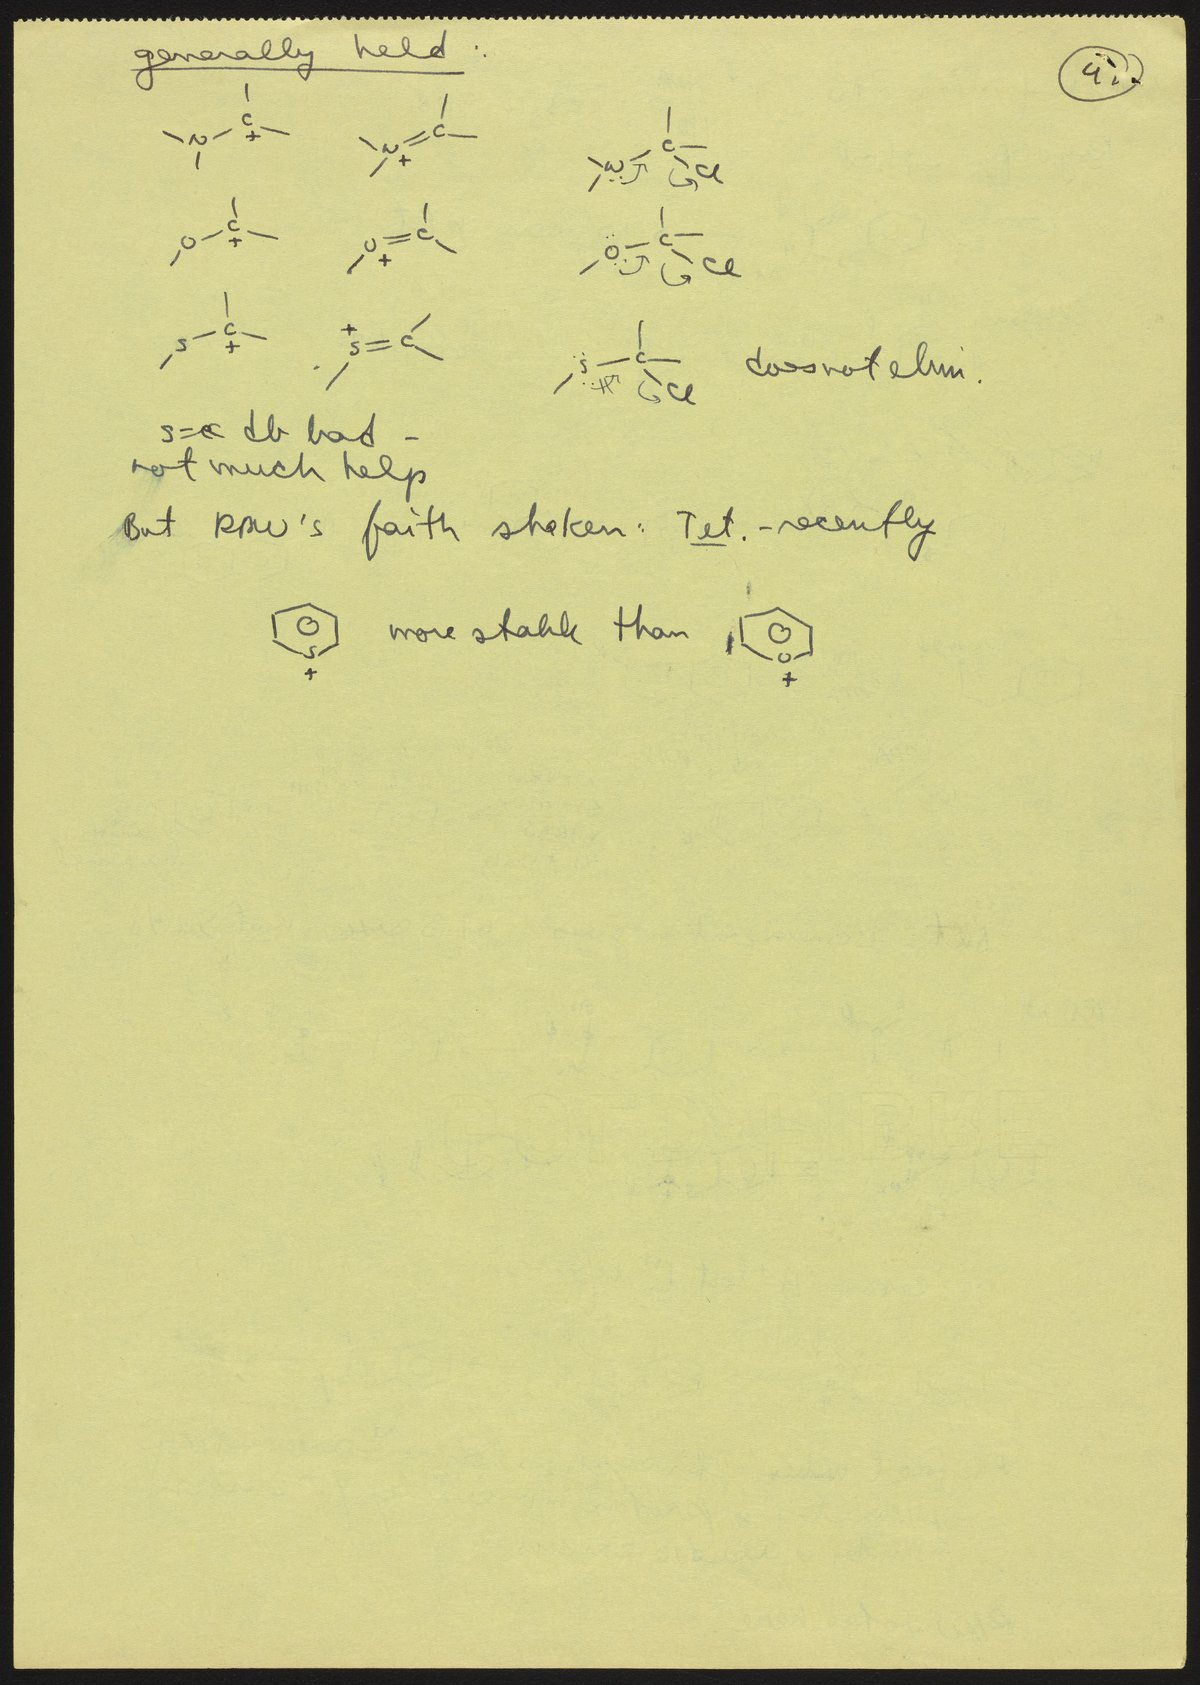 generally held :
4
N C + N + C N C Cl
O C + O + C O C Cl
S C + + S = C S C Cl does not elim.
S=C db bad -
not much help
But RBW's faith shaken : Tet. - recently
S + more stable than O +